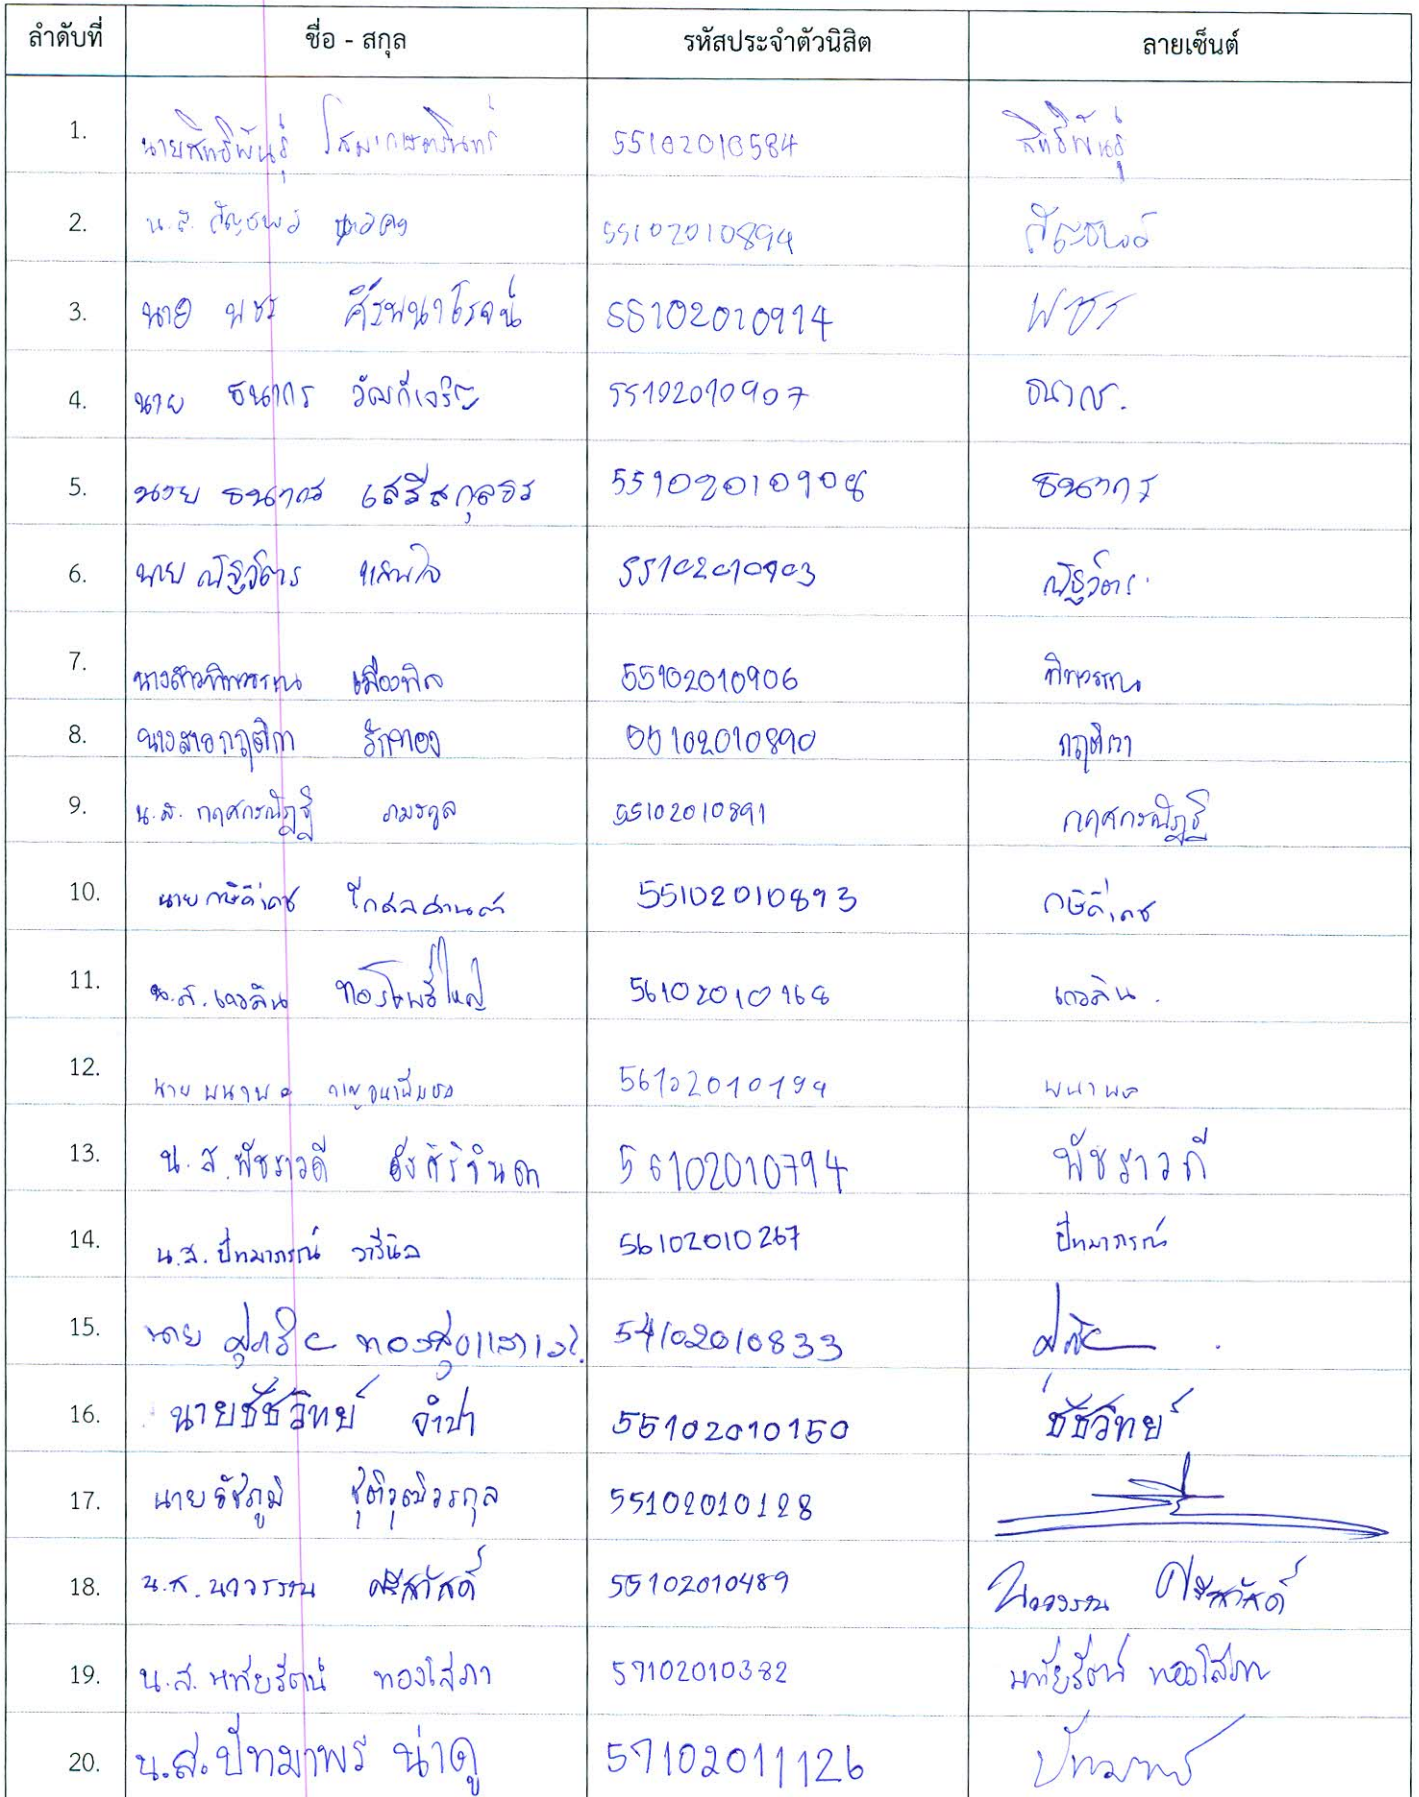 ลำดับที่ ชื่อ - สกุล รหัสประจำตัวนิสิต ลายเซ็นต์
1. นายสิทธิพันธุ์ 55102010584 สิทธิพันธุ์
2. น.ส. 55102010894
3. นาย พชร ศิริพนาโรจน์ 55102010914 พชร
4. นาย ธนากร วัฒกีเจริญ 55102010907 ธนากร.
5. นาย ธนากร เสรีสกุลธร 55102010908 ธนากร
6. นาย ณัฐวัตร แสนใจ 55102010903 ณัฐวัตร
7. นางสาวทิพวรรณ เมืองพิล 55102010906 ทิพวรรณ
8. นางสาวกฤติกา รักทอง 55102010890 กฤติกา
9. น.ส. กฤศกรณัฏฐ์ ภมรกูล 55102010891 กฤศกรณัฏฐ์
10. นาย กษิดิ์เดช โกศลศานต์ 55102010893 กษิดิ์เดช
11. น.ส. เกวลิน ทองโพธิ์ใหญ่ 56102010168 เกวลิน .
12. นาย พนาพล 56102010194 พนาพล
13. น.ส. พัชราวดี อังศิริจินดา 56102010794 พัชราวดี
14. น.ส. ปัทมาภรณ์ วารีนิล 56102010267 ปัทมาภรณ์
15. นาย 54102010833
16. นายชัชวิทย์ จำปา 55102010150 ชัชวิทย์
17. นายรัชภูมิ ชุติวุฒิวรกุล 55102010128
18. น.ส. นววรรณ ศรีสวัสดิ์ 55102010489 นววรรณ ศรีสวัสดิ์
19. น.ส. หทัยรัตน์ ทองโสภา 57102010382 หทัยรัตน์ ทองโสภา
20. น.ส. ปัทมาพร น่าดู 57102011126 ปัทมาพร